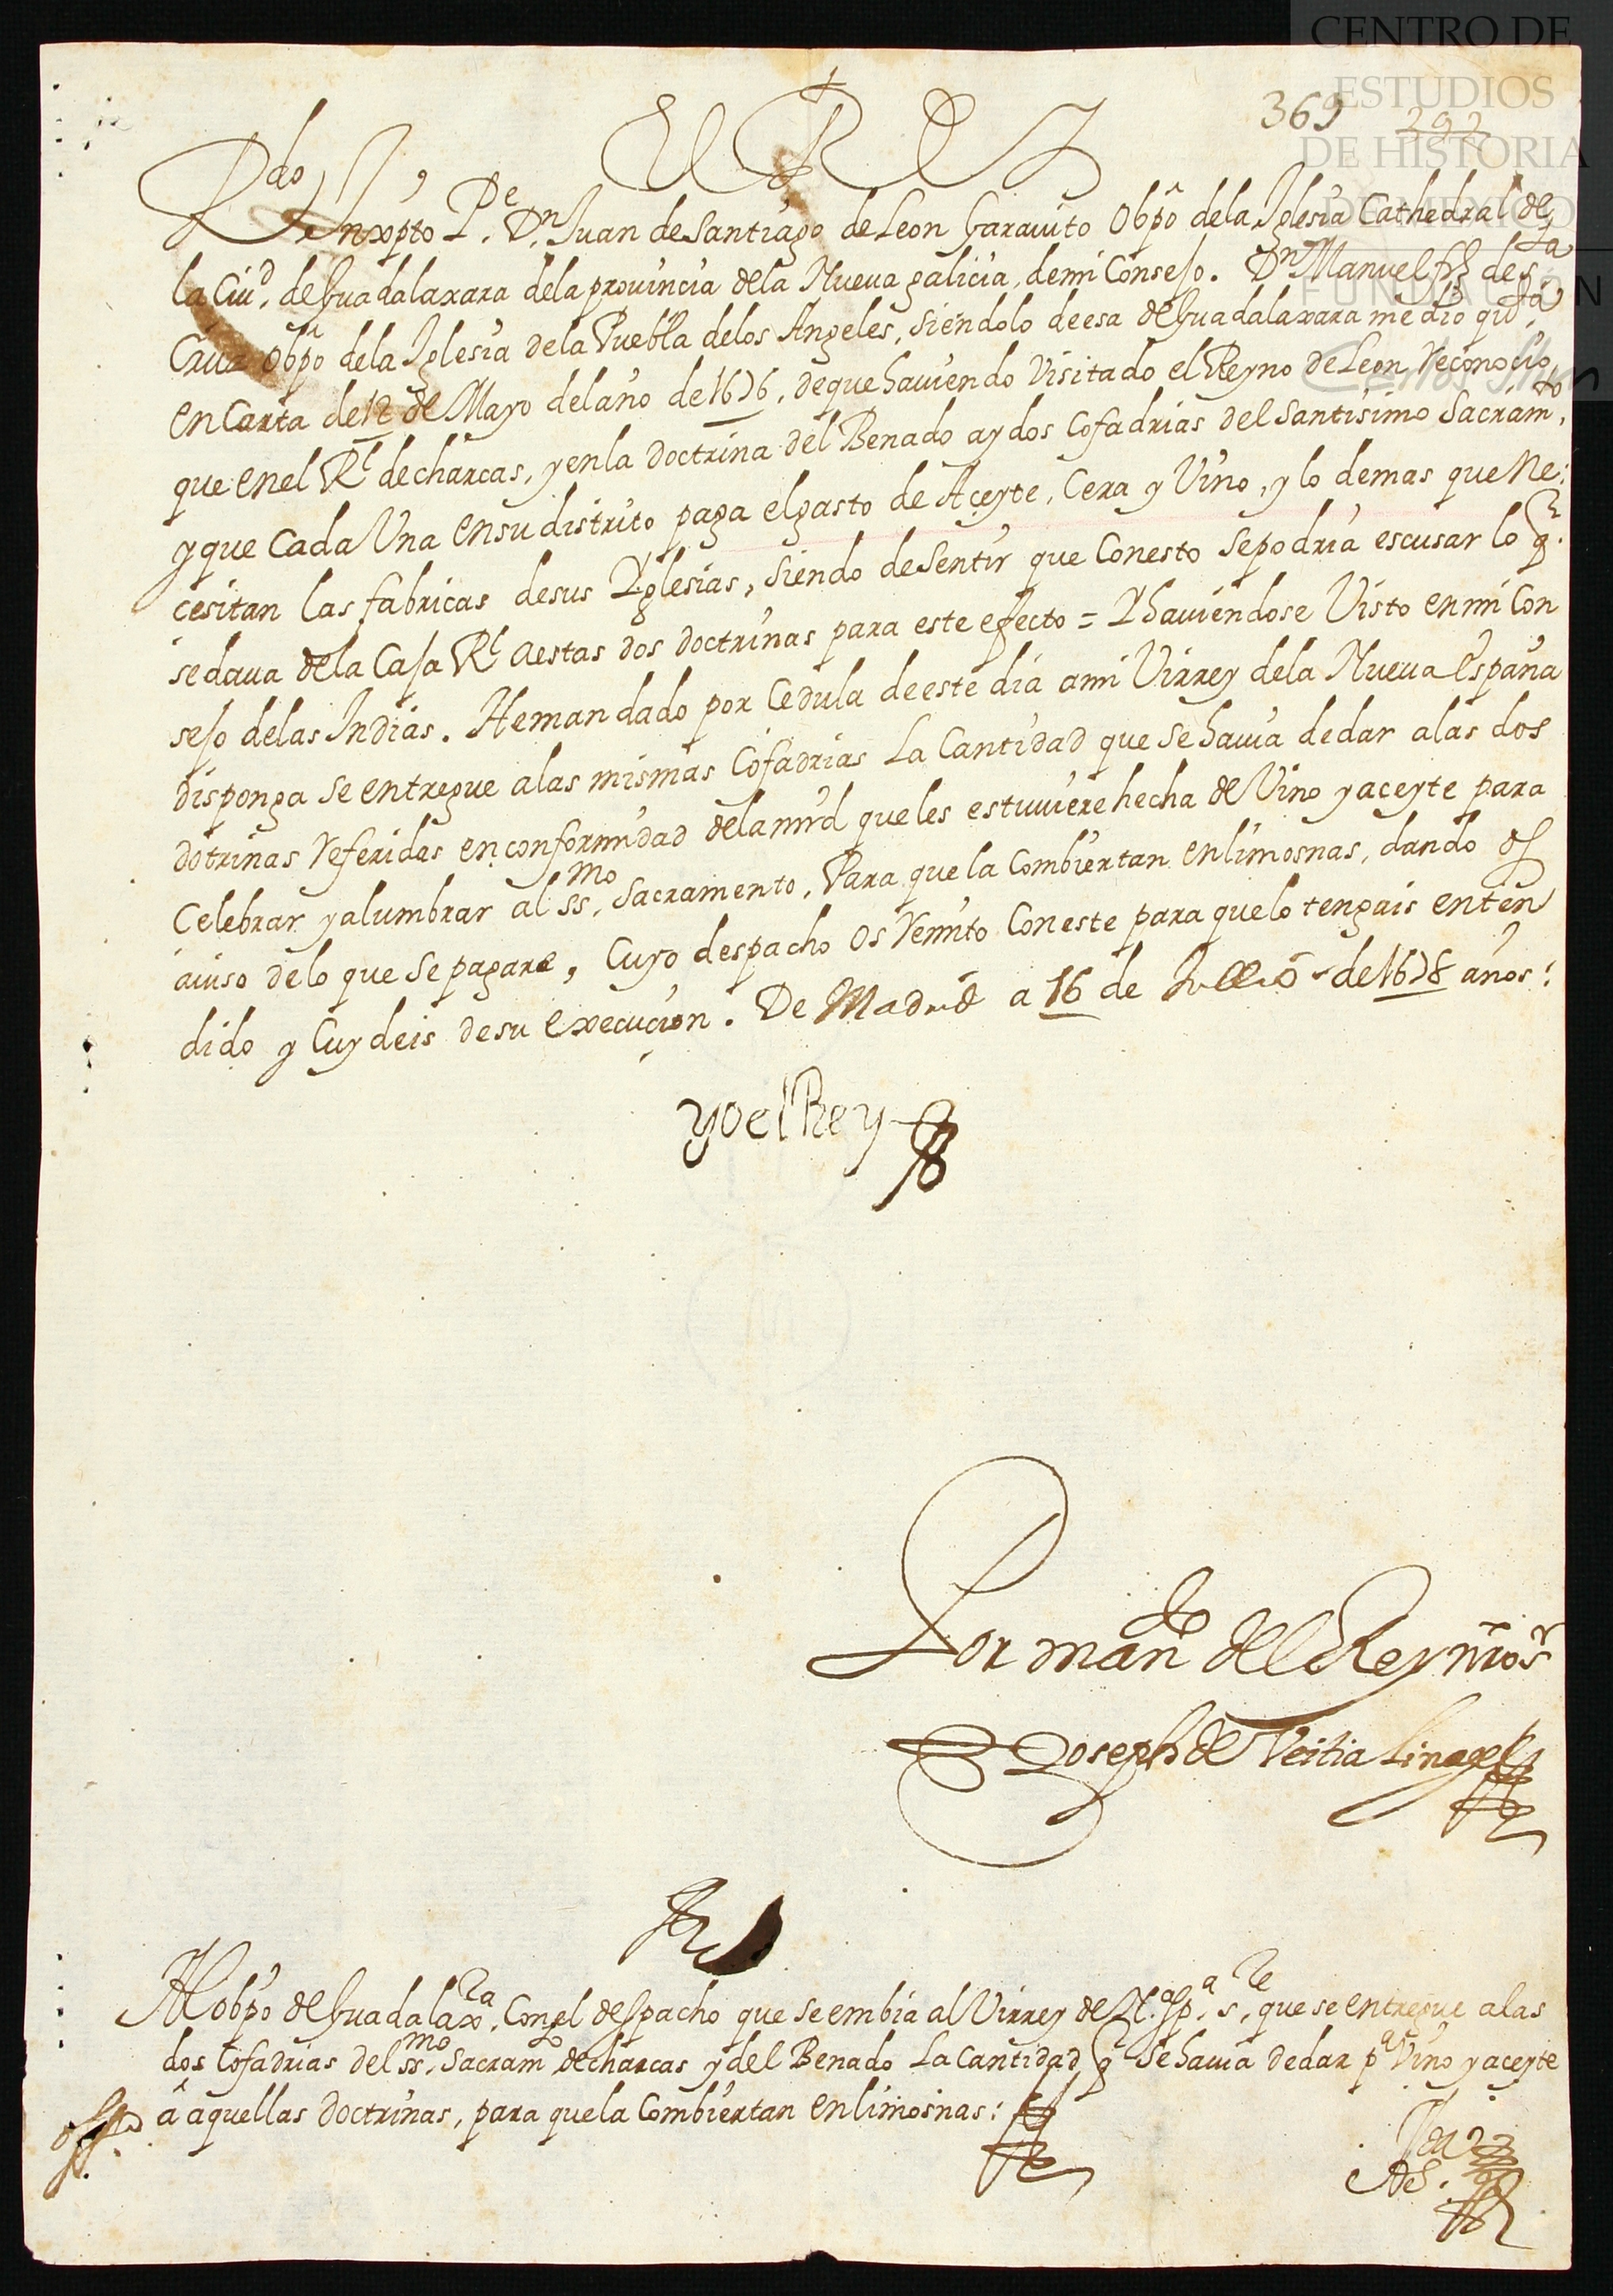 CENTRO DE
ESTUDIOS
DE HISTORIA
DE MEXICO
FUNDACIÓN
369 292
El Rey
R.do Inxpto P.e D.n Juan de Santiago de Leon Garauito Obpo dela Iglesia Cathedral de
la Ciu.d de Guadalaxara dela prouincia dela Nueua galicia, demi Consejo. D.n Manuel frz de s.ta
Cruz obpo dela Iglesia dela Puebla delos Angeles, siendolo deesa de Guadalaxara me dio q.ta
en Carta de 12 de Mayo delaño de 1676, deque hauiendo Visitado el Reyno de Leon Reconocio,
que enel R.l decharcas, yenla doctrina del Benado ay dos Cofadrias del santisimo Sacram.to,
y que Cada Una ensu distrito paga elgasto de Açeyte, Cera y Vino, y lo demas que Ne:
cesitan las fabricas desus Yglesias, siendo desentir que Conesto sepodria escusar lo q.
sedaua dela Caja R.l aestas dos doctrinas para este efecto = Yhauiendose Visto enmi Con
sejo delas Indias. Hemandado por Cedula deeste dia ami Virrey dela Nueua España
disponga se entregue alas mismas Cofadrias La Cantidad que se hauia dedar alas dos
dotrinas referidas en conformidad delamrd queles estuuiere hecha de Vino yaceyte para
Celebrar yalumbrar al ss.mo Sacramento, Para quela Combiertan enlimosnas, dando os
auiso delo que se pagare, Cuyo despacho os remito Coneste para quelo tengais enten
dido y Cuydeis desu execucion. De Madrid a 16 de Jullio de 1678 años:
yo el Rey
Por man.do del Rey nro s.r
Joseph de Veitia Linage
Al obpo de Guadalax.ra, Conel despacho que se embia al Virrey de N.a Esp.a s.re que se entregue alas
dos Cofadrias del ss.mo Sacram.to decharcas y del Benado La Cantidad q se hauia dedar p.a Vino yaceyte
a aquellas doctrinas, para quela Combiertan enlimosnas: